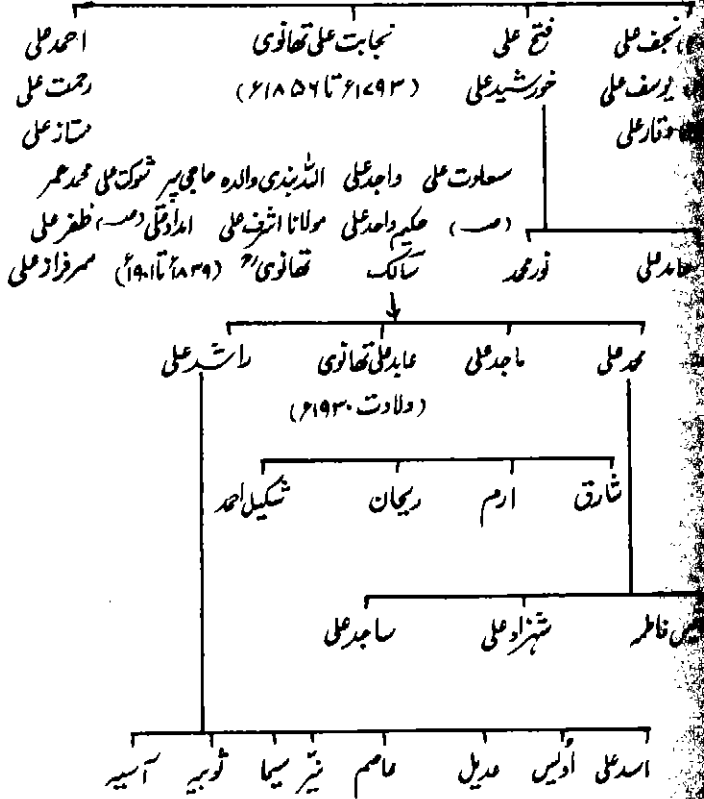 نجف علی فتح علی نجابت علی تھانوی احمد علی
یوسف علی خورشید علی (۱۷۹۳ء تا ۱۸۵۶ء) رحمت علی
وقار علی ممتاز علی
سعادت علی واجد علی اللہ بندی والدہ حاجی پیر شوکت علی محمد عمر
(صـ) حکیم واحد علی مولانا اشرف علی امداد علی (صـ) ظفر علی
حامد علی نور محمد سالک تھانویؒ (۱۸۳۹ء تا ۱۹۰۱ء) سرفراز علی
محمد علی ماجد علی عابد علی تھانوی راشد علی
(ولادت ۱۹۳۰ء)
شارق ارم ریحان شکیل احمد
فاطمہ شہزاد علی ساجد علی
اسد علی اُویس عدیل عاصم نیّر سیما ثوبیہ آسیہ